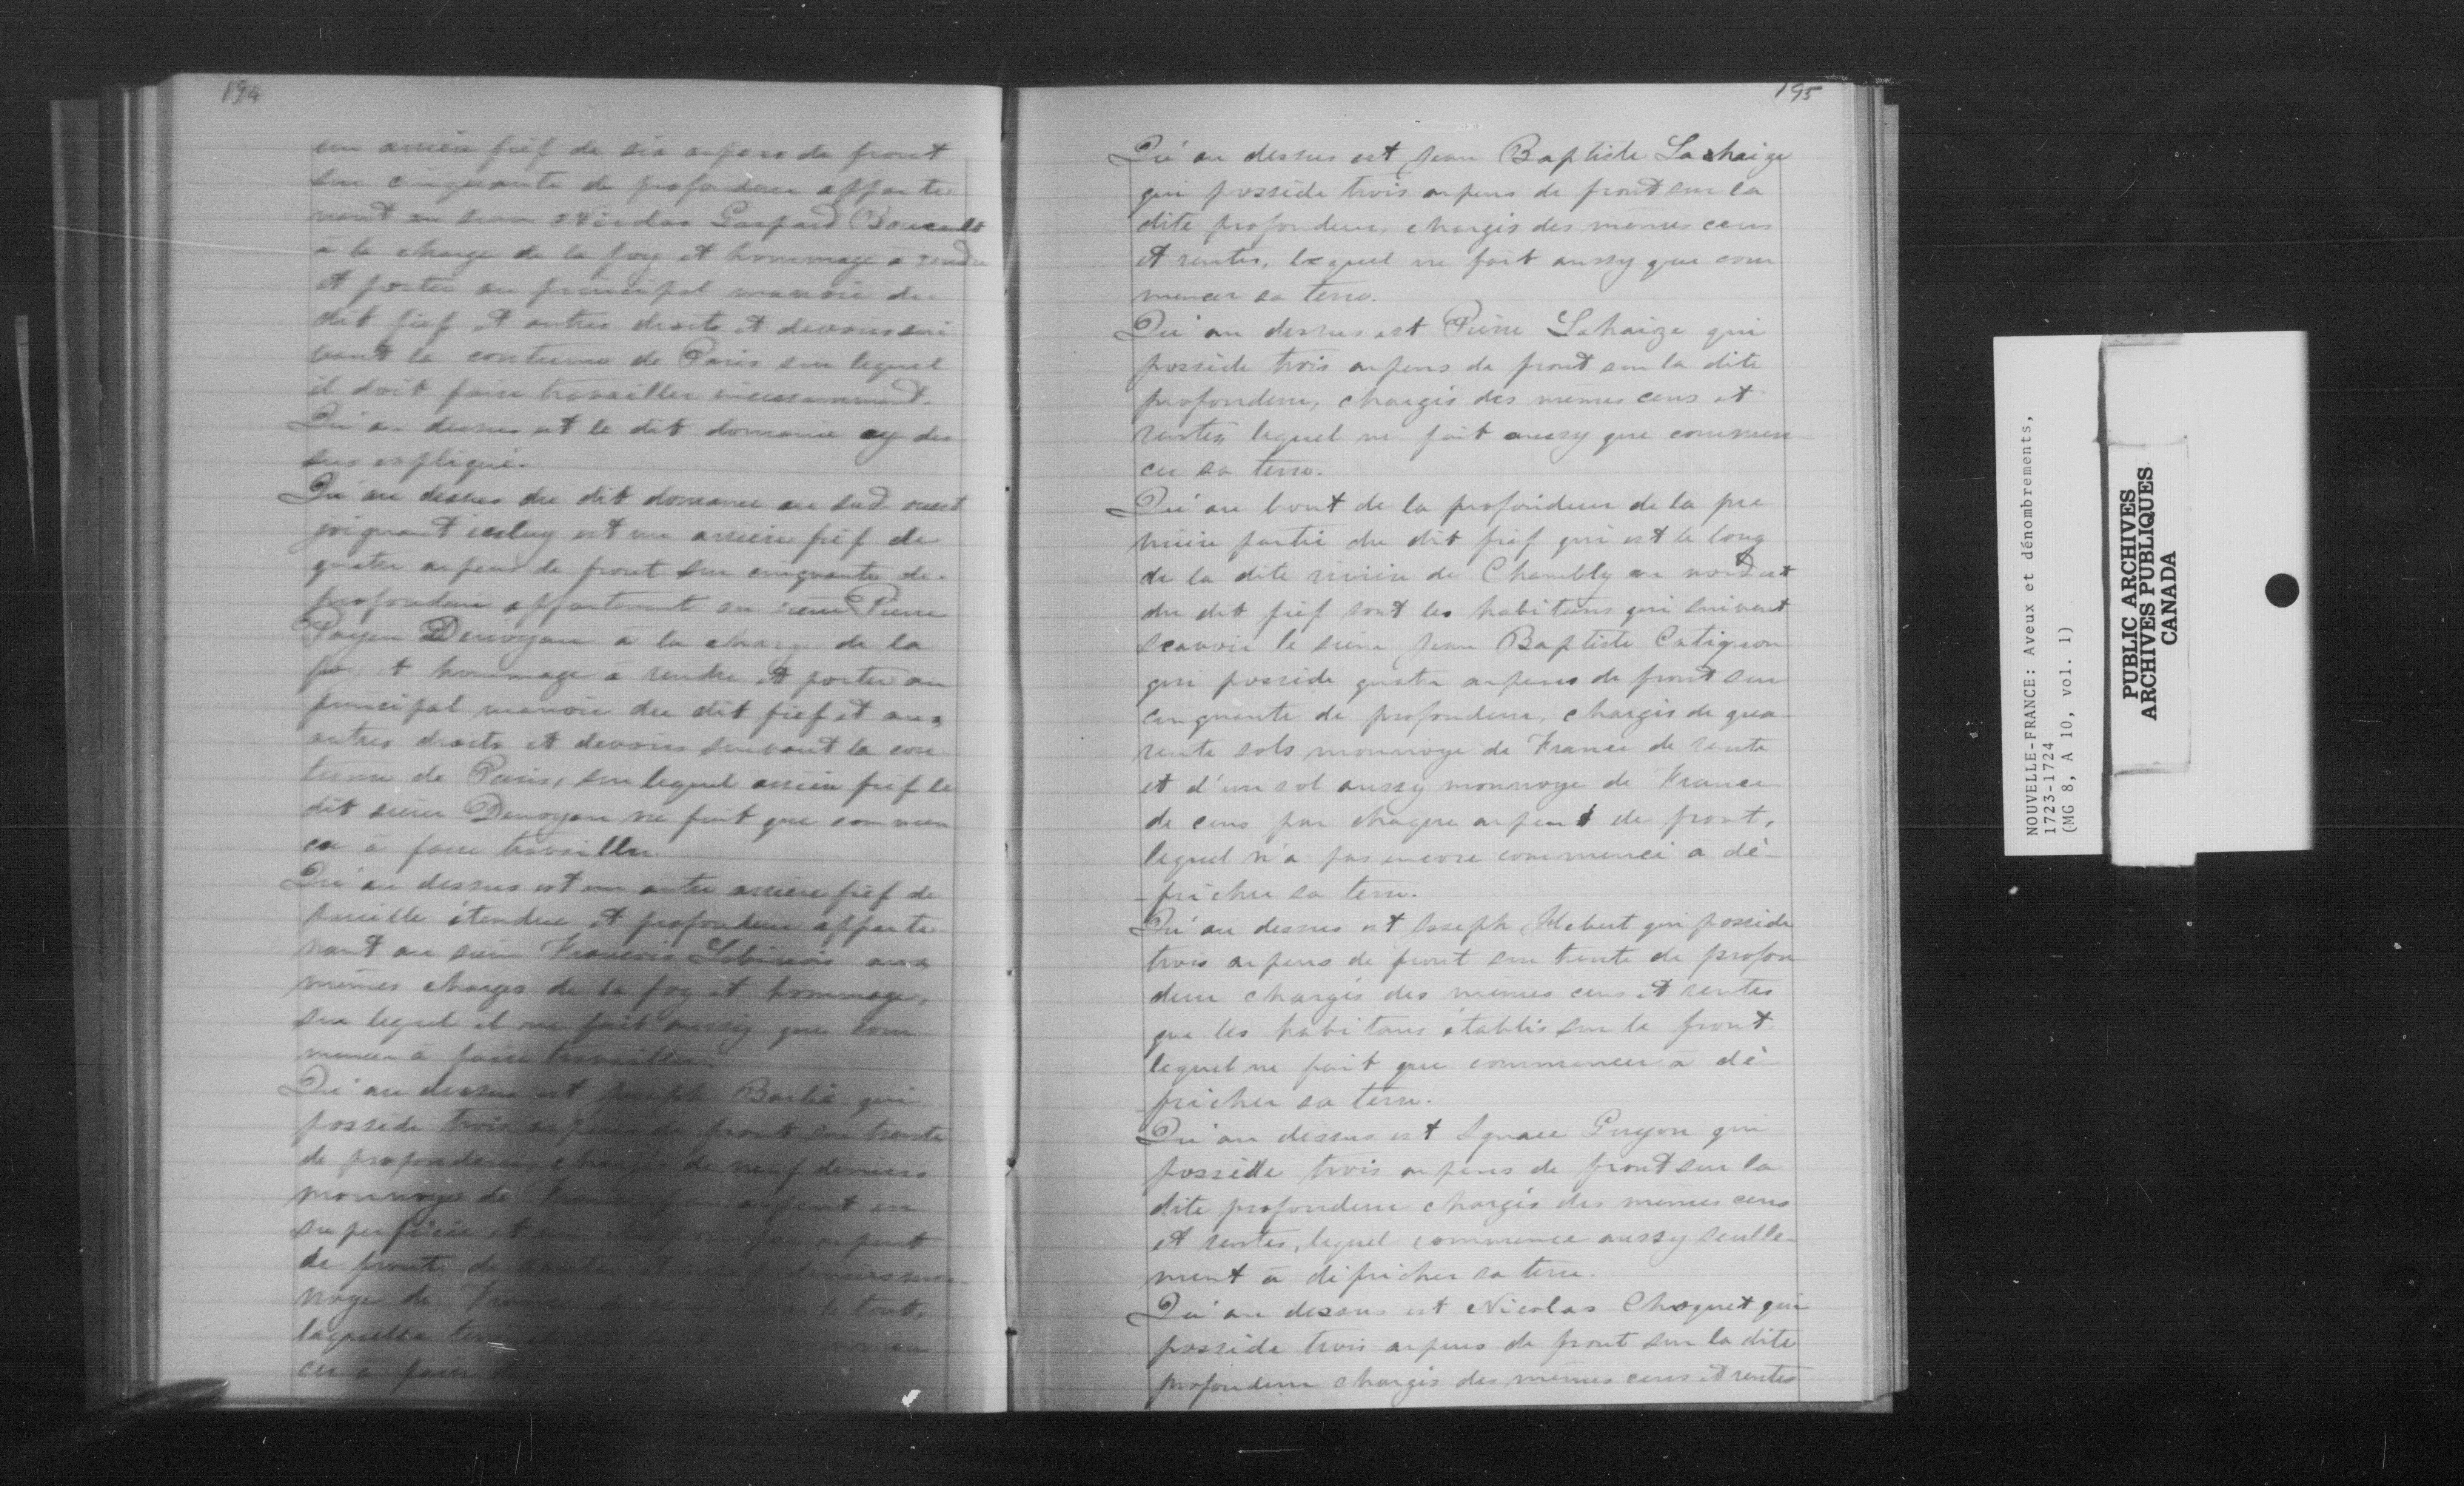 194
un arrière fief de six arpens de front
sur cinquante de profondeur apparte
nant au sieur Nicolas Gaspard Boucault
a la charge de la foy et hommage a rendre
et porter au principal manoir du
dit fief et autres droits et devoirs sui
vant la coutume de Paris sur lequel
il doit faire travailler incessamment.
Qu'au dessus est le dit domaine cy des
sus expliqué.
Qu'au dessus du dit domaine au sud ouest
joignant iceluy est un arrière fief de
quatre arpens de front sur cinquante de
profondeur appartenant au sieur Pierre
Payen Denoyan à la charge de la
foy et hommage à rendre et porter au
principal manoir du dit fief et aux
autres droits et devoirs suivant la cou
tume de Paris, sur lequel arrière fief le
dit sieur Denoyan ne fait que commen
cer à faire travailler.
Qu'au dessus est un autre arrière fief de
pareille étendue et profondeur apparte
nant au sieur Francois Lobinois aux
mêmes charges de la foy et hommage,
sur lequel il ne fait aussy que com
mencer à faire travailler.
Qu'au dessus est Joseph Barbé qui
possède trois arpens de front sur trente
de profondeur, chargés de neuf deniers
monnoye de France par arpent en
superficie et un chapon par arpent
de front de deniers mon
noye de France de cens le tout,
laquelle
cer à faire
195
Qu'au dessus est Jean Baptiste Lahaize
qui possède trois arpens de front sur la
dite profondeur, chargés des memes cens
et rentes, lequel ne fait aussy que com
mencer sa terre.
Qu'au dessus est Pierre Lahaize qui
possède trois arpens de front sur la dite
profondeur, chargés des mêmes cens et
rentes lequel ne fait aussy que commen
cer sa terre.
Qu'au bout de la profondeur de la pre
mière partie du dit fief qui est le long
de la dite rivière de Chambly au nord est
du dit fief sont les habitans qui suivent
scavoir le sieur Jean Baptiste Catignon
qui possède quatre arpens de front sur
cinquante de profondeur, chargés de qua-
rente sols monnoye de France de rente
et d'un sol aussy monnoye de France
de cens par chaque arpent de front,
lequel n'a pas encore commencé a dé-
fricher sa terre.
Qu'au dessus est Joseph Hebert qui possède
trois arpens de front sur trente de profon
deur chargés des mêmes cens et rentes
que les habitans établis sur le front
lequel ne fait que commencer à dé-
fricher sa terre.
Qu'au dessus est Ignace Guyon qui
possède trois arpens de front sur la
dite profondeur chargés des mêmes cens
et rentes, lequel commence aussy seulle-
ment à défricher sa terre.
Qu'au dessus est Nicolas Choquet qui
possède trois arpens de front sur la dite
profondeur chargés des mêmes cens et rentes
NOUVELLE-FRANCE: Aveux et dénombrements,
1723-1724
(MG 8, A 10, vol. 1)
PUBLIC ARCHIVES
ARCHIVES PUBLIQUES
CANADA